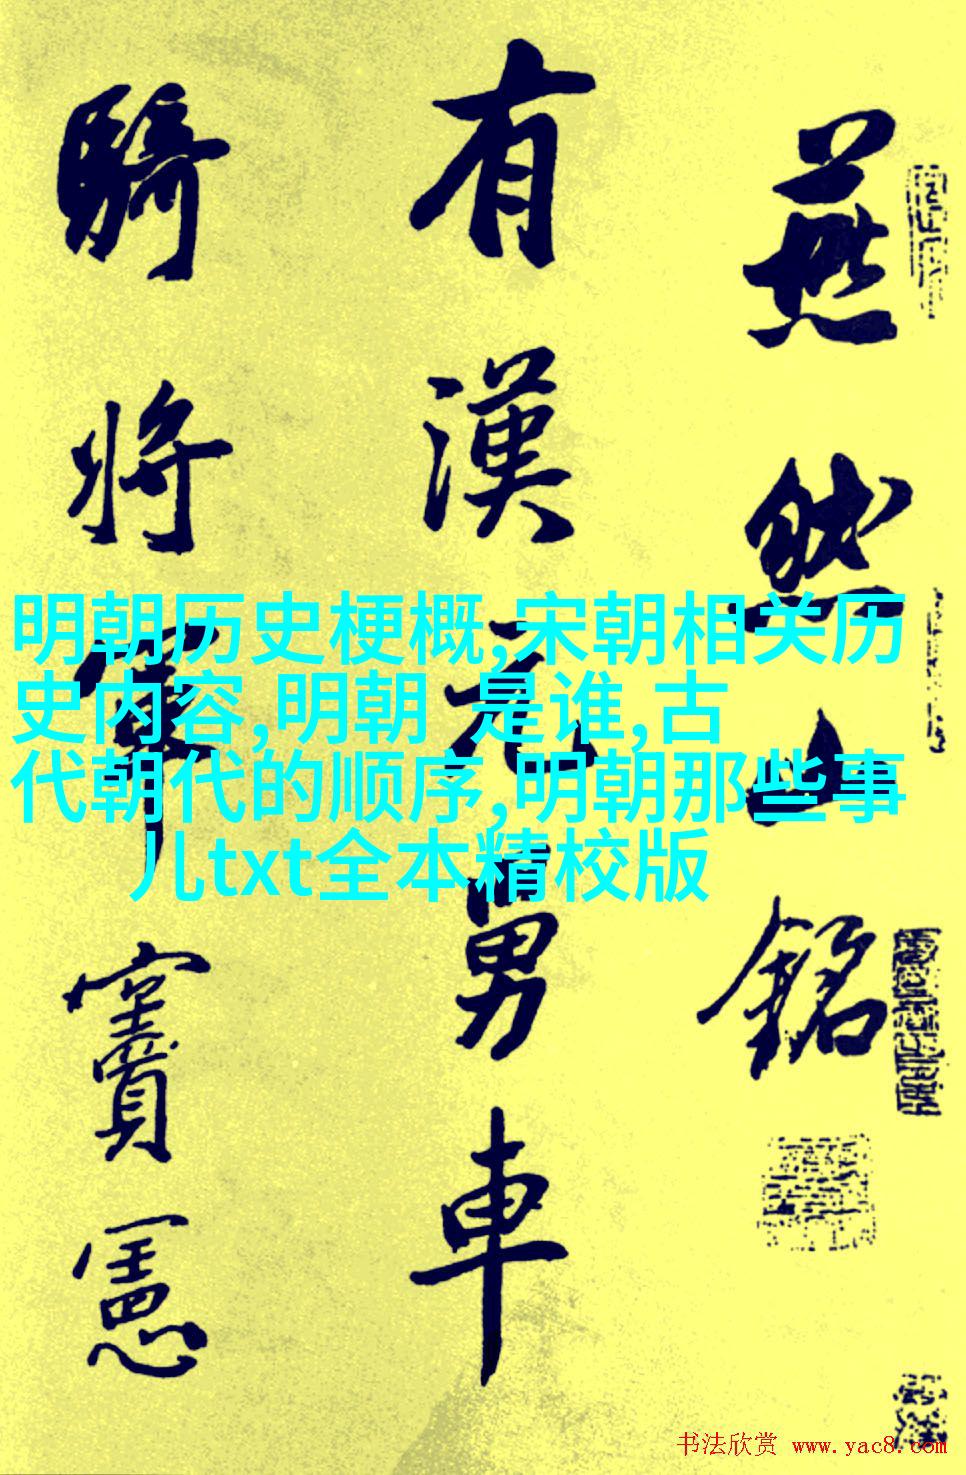 燕然山銘
有漢元舅車
騎將軍竇憲
明朝历史梗概,宋朝相关历
史内容,明朝 是谁,古
代朝代的顺序,明朝那些事
儿txt全本精校版
书法欣赏 www.yac8.com